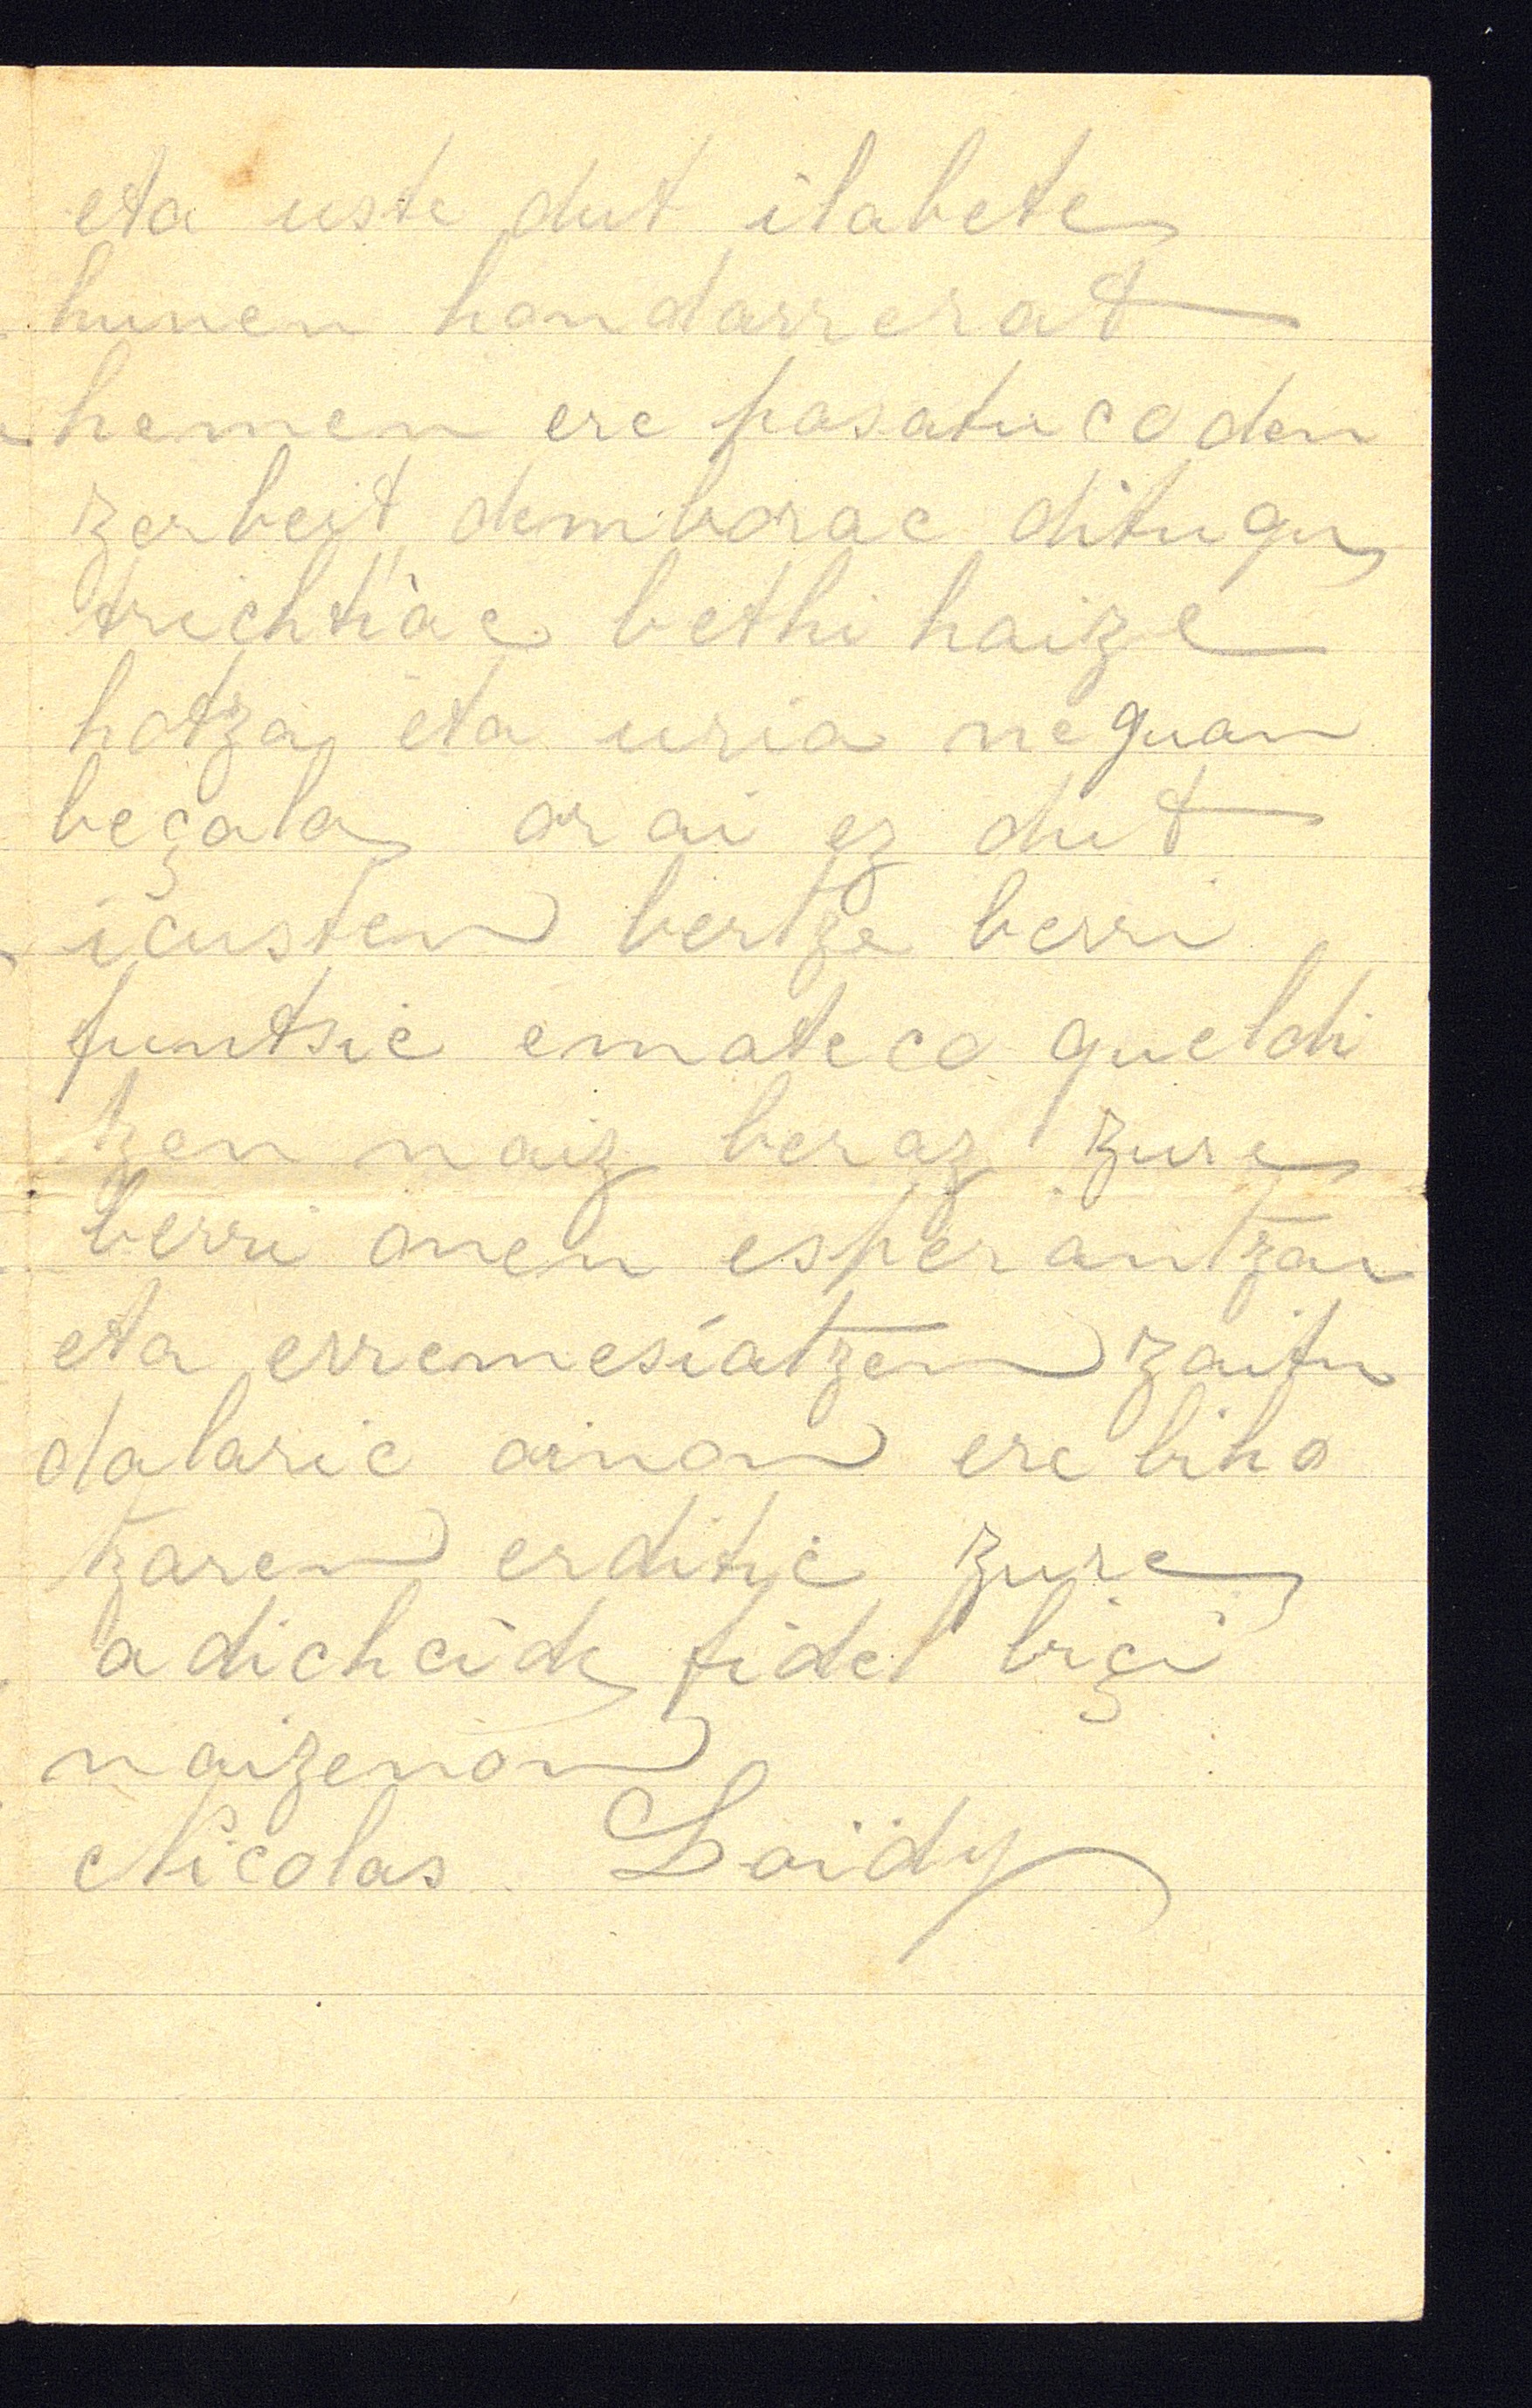 eta uste dut ilabete
hunen hondarrerat
hemen ere pasatuco den
zerbeit demborac ditugu
trichtiac bethi haize
hotza eta uria neguan
beçala orai ez dut
icusten bertze berri
funtsic emateco gueldi
tzen naiz beraz zure
berri onen esperantzan
eta erremesiatzen zaitu
dalaric ainon ere biho
tzaren erditic zure
adichcide fidel biçi
naizenon
Nicolas Loidy